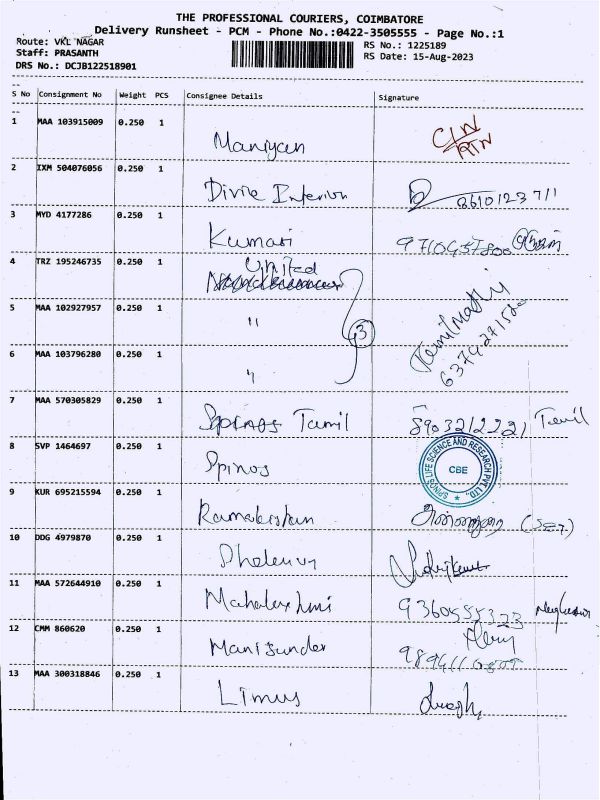 THE PROFESSIONAL COURIERS, COIMBATORE
Delivery Runsheet - PCM - Phone No.:0422-3505555 - Page No.:1
Route: VKL NAGAR
Staff: PRASANTH
DRS No.: DCJB122518901
RS No.: 1225189
RS Date: 15-Aug-2023
S No Consignment No Weight PCS Consignee Details Signature
1 MAA 103915009 0.250 1 Maniyan
2 IXM 504076056 0.250 1 Divie Interior
3 MYD 4177286 0.250 1 Kumari
4 TRZ 195246735 0.250 1 United
5 MAA 102927957 0.250 1 "
3
6 MAA 103796280 0.250 1 "
7 MAA 570305829 0.250 1 Spinos Tamil 8903212221 Tamil
8 SVP 1464697 0.250 1 Spinos
SPINOS LIFE SCIENCE AND RESEARCH PVT. LTD.,
CBE
9 KUR 695215594 0.250 1 Ramakrishnan
10 DDG 4979870 0.250 1
11 MAA 572644910 0.250 1 Mahalaxhmi 9360555323
12 CMM 860620 0.250 1 Manisunder
13 MAA 300318846 0.250 1 Limus